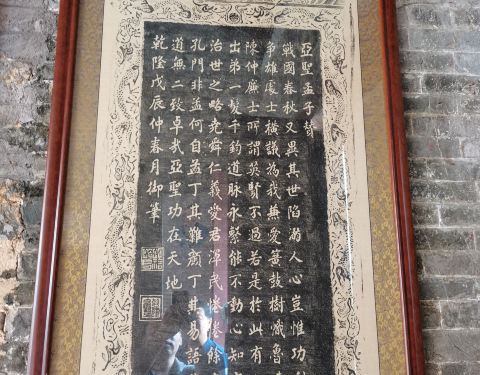 亞聖孟子贊
戰國春秋又異其世陷溺人心豈惟功
爭雄處士橫議為我兼愛簧鼓樹幟魯
陳仲廉士所謂英賢不過若是於此有
出弟一髮千鈞道脈永繫能不動心知
治世之略堯舜仁義愛君澤民惓惓餘
孔門非孟何自孟丁其難顏丁其易語
道無二致卓哉亞聖功在天地
乾隆戊辰仲春月御筆